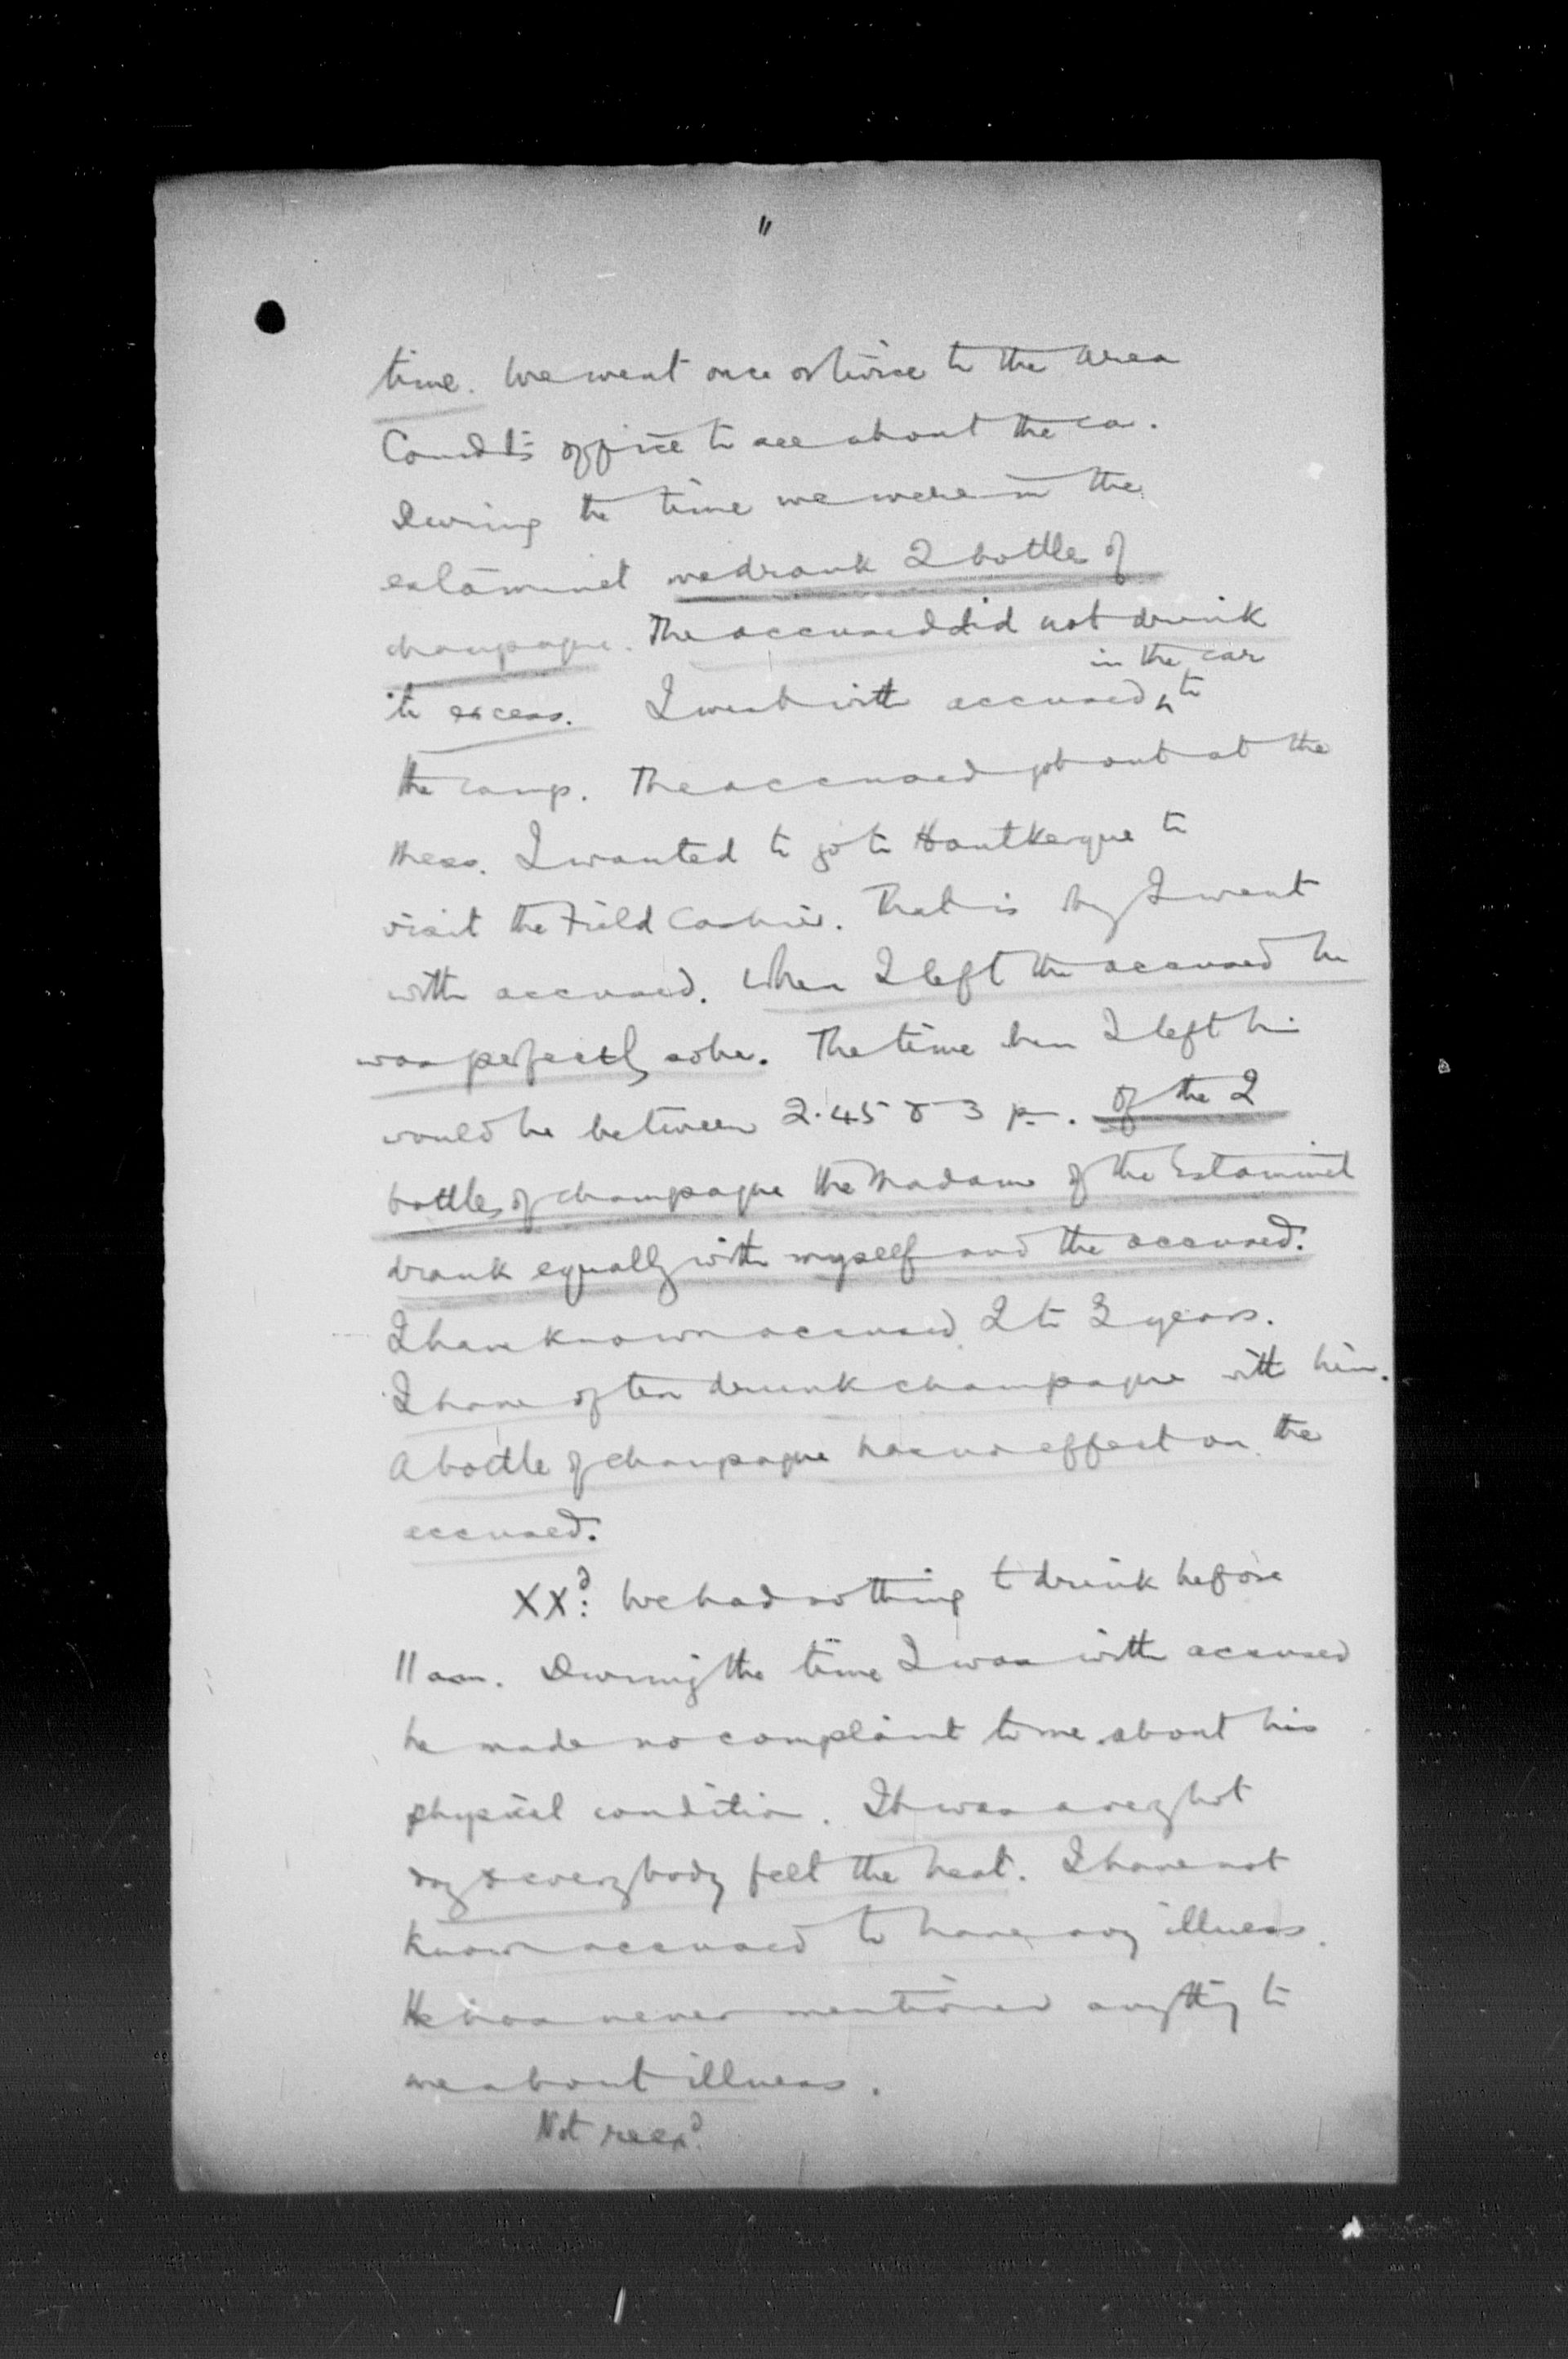 11
time. We went once or twice to the Area
Comdt's office to see about the car.
During the time we were in the
estaminet we drank 2 bottles of
champagne. The accused did not drink
in the car
to excess. I went with accused ^ to
the camp. The accused got out at the
Mess. I wanted to go to Houtkerque to
visit the Field Cashier. That is why I went
with accused. When I left the accused he
was perfectly sober. The time when I left him
would be between 2.45 & 3 pm. Of the 2
bottles of champagne the Madame of the Estaminet
drank equally with myself and the accused.
I have known accused 2 to 3 years.
I have often drunk champagne with him.
A bottle of champagne has no effect on the
accused.
XXd: We had nothing to drink before
11 am. During the time I was with accused
he made no complaint to me about his
physical condition. It was a very hot
day & everybody felt the heat. I have not
known accused to have any illness.
He has never mentioned anything to
me about illness.
Not reexd.